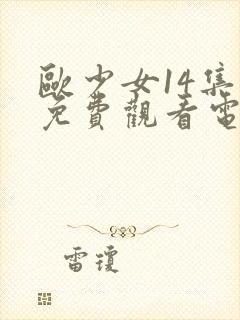 歐少女14集
免費觀看電
雷瓊